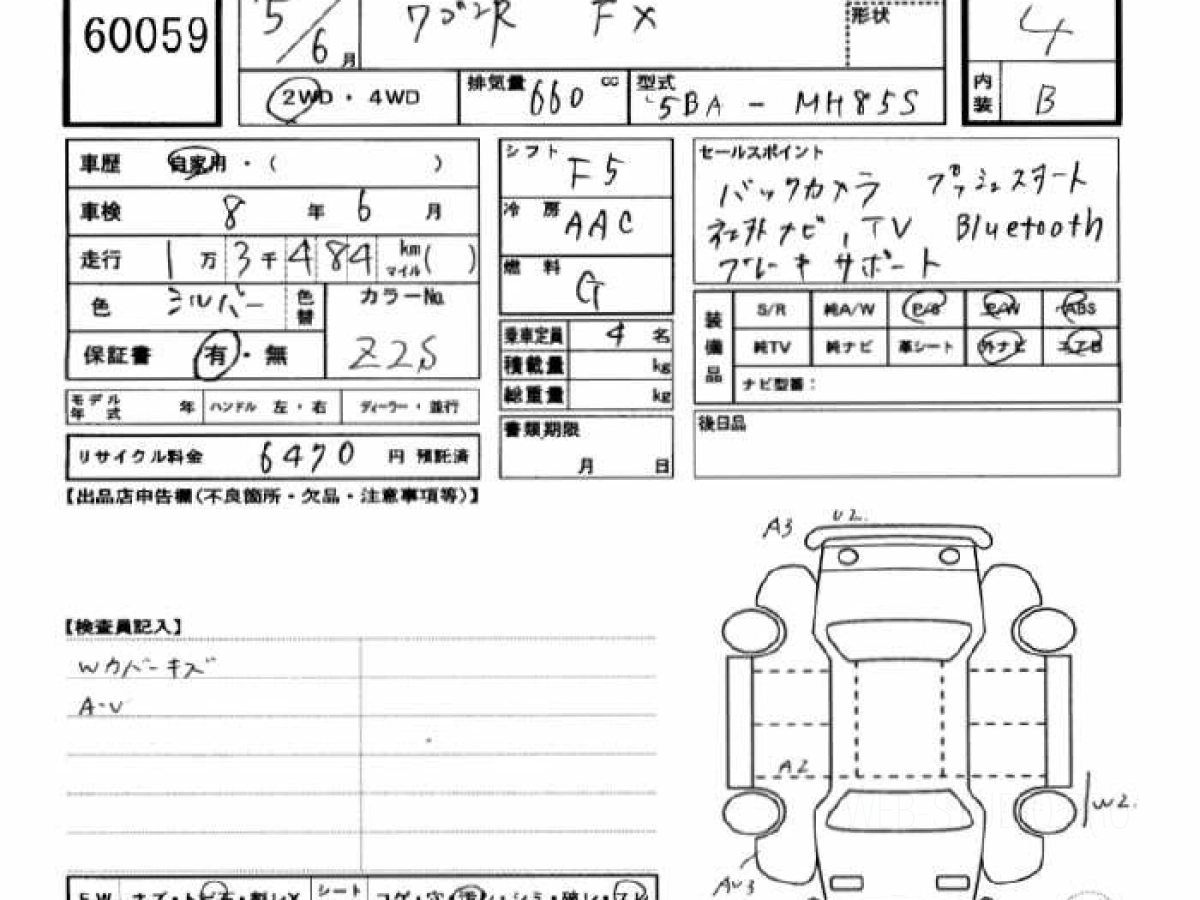 60059
5/6月 ワゴンR FX 形状 4
2WD・4WD 排気量 660 cc 型式 5BA-MH85S 内装 B
車歴 自家用・( )
車検 8年 6月
走行 1万3千484 km マイル( )
色 シルバー 色替 カラーNo. Z2S
保証書 有・無
モデル年式 年 ハンドル 左・右 ディーラー・並行
リサイクル料金 6470 円 預託済
シフト F5
冷房 AAC
燃料 G
乗車定員 4 名
積載量 kg
総重量 kg
書類期限 月 日
セールスポイント
バックカメラ プッシュスタート
社外ナビ,TV Bluetooth
ブレーキサポート
装備品 S/R 純A/W P/S P/W ABS
純TV 純ナビ 革シート 外ナビ エアB
ナビ型番:
後日品
【出品店申告欄(不良箇所・欠品・注意事項等)】
【検査員記入】
Wカバーキズ
A・U
A3 U2.
A2
W2.
AU3
FW キズ・トビ石・割レX シート コゲ・穴・汚レ・シミ・破レ・スレ